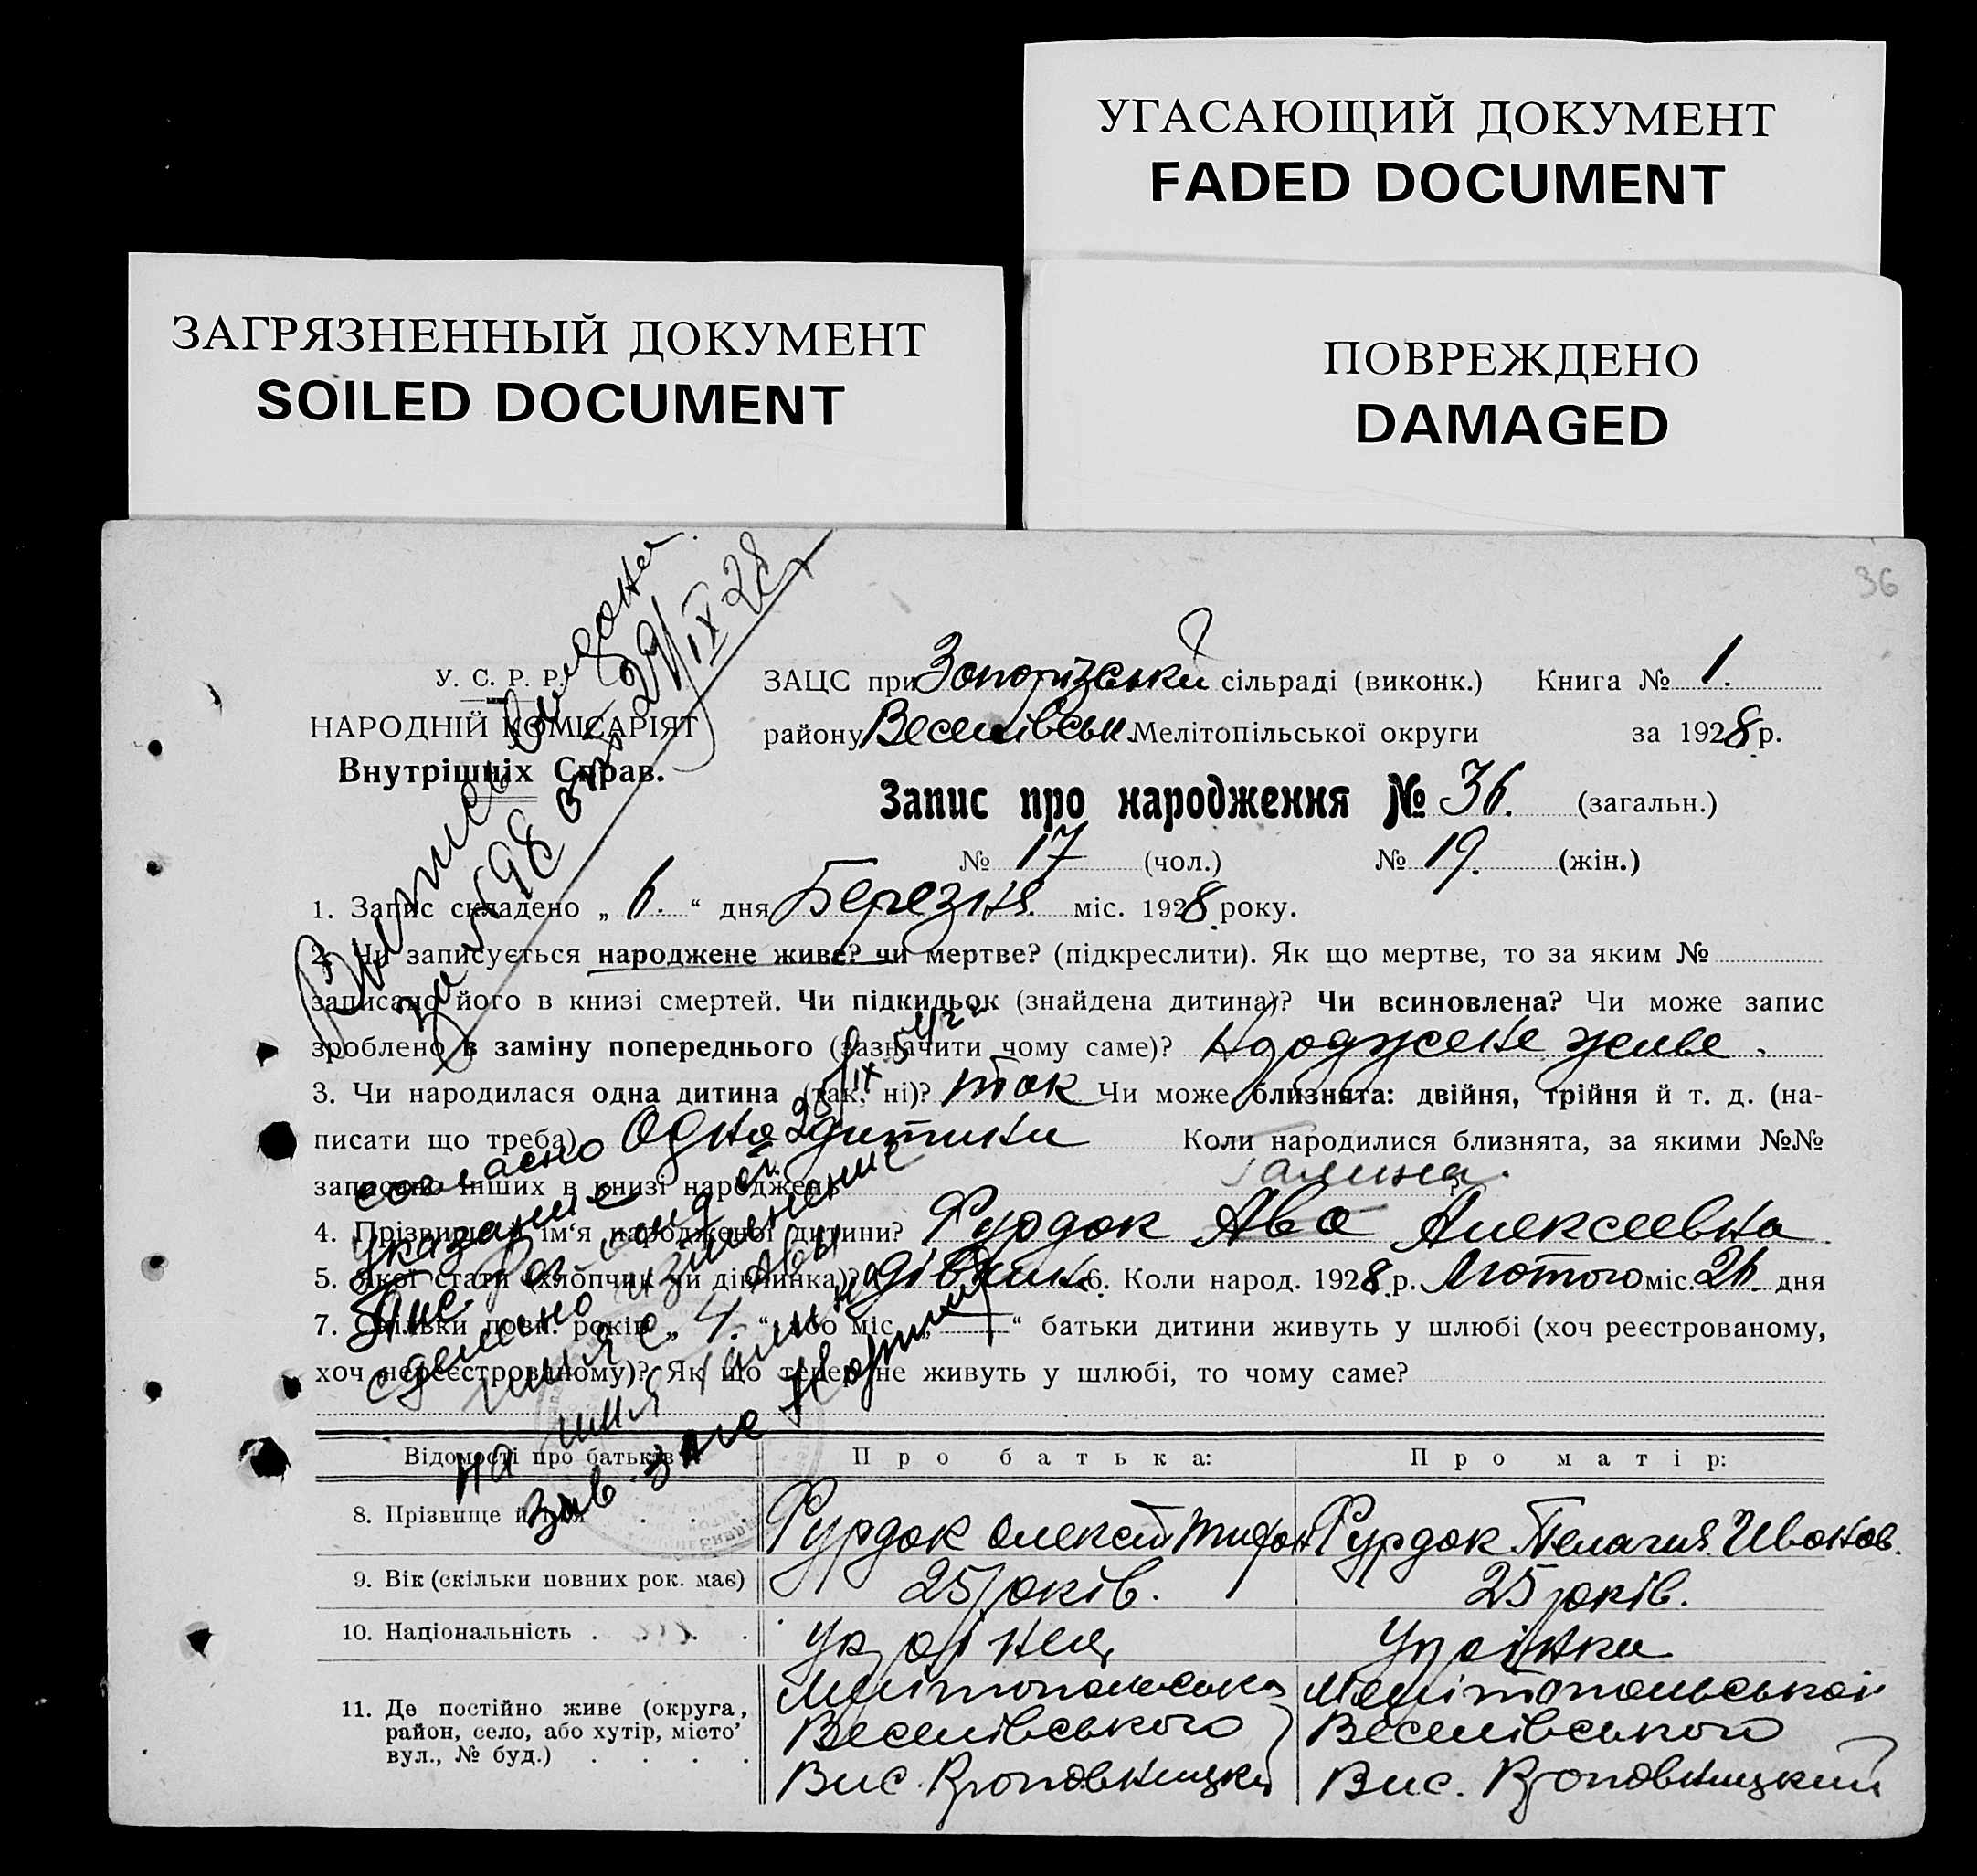 УГАСАЮЩИЙ ДОКУМЕНТ
FADED DOCUMENT
ЗАГРЯЗНЕННЫЙ ДОКУМЕНТ
SOILED DOCUMENT
ПОВРЕЖДЕНО
DAMAGED
36
Выпись выдана
за № 98 29/IX 28
У. С. Р. Р.
НАРОДНІЙ КОМІСАРІЯТ
Внутрішніх Справ.
ЗАЦС при Запорізькій сільраді (виконк.) Книга № 1.
району Веселівськ. Мелітопільської округи за 1928 р.
Запис про народження № 36. (загальн.)
№ 17 (чол.) № 19. (жін.)
1. Запис складено „ 6. “ дня Березня міс. 1928 року.
2. Чи записується народжене живе? чи мертве? (підкреслити). Як що мертве, то за яким №
записано його в книзі смертей. Чи підкидьок (знайдена дитина)? Чи всиновлена? Чи може запис
зроблено в заміну попереднього (зазначити чому саме)? Народжене живе.
3. Чи народилася одна дитина (так, ні)? так Чи може близнята: двійня, трійня й т. д. (на-
писати що треба) Одна дитина Коли народилися близнята, за якими №№
записано інших в книзі народжень
Галина.
4. Прізвище й ім‘я народженої дитини? Фурдак Ава Алексеевна.
5. Якої стати (хлопчик чи дівчинка)? 6. Коли народ. 1928 р. Лютого міс. 26 дня
7. Скільки повн. років „ 4. “ або міс. „ — “ батьки дитини живуть у шлюбі (хоч реєстрованому,
хоч нереєстрованому)? Як що тепер не живуть у шлюбі, то чому саме?
согласно
указание
сделано изменение
имя с Авы
на имя Галина
Зав. загс
Відомості про батьків Про батька: Про матір:
8. Прізвище й ім'я . . . Фурдак Олексій Тифон Фурдак Пелагия Иванов.
9. Вік (скільки повних рок. має) 25 років. 25 років.
10. Національність . . . . Українец Українка
11. Де постійно живе (округа, Мелітопольська Мелітопольськой
район, село, або хутір, місто Веселівського Веселівського
вул., № буд.) . . . . Вис. Кроповницкий Вис. Кроповницкий